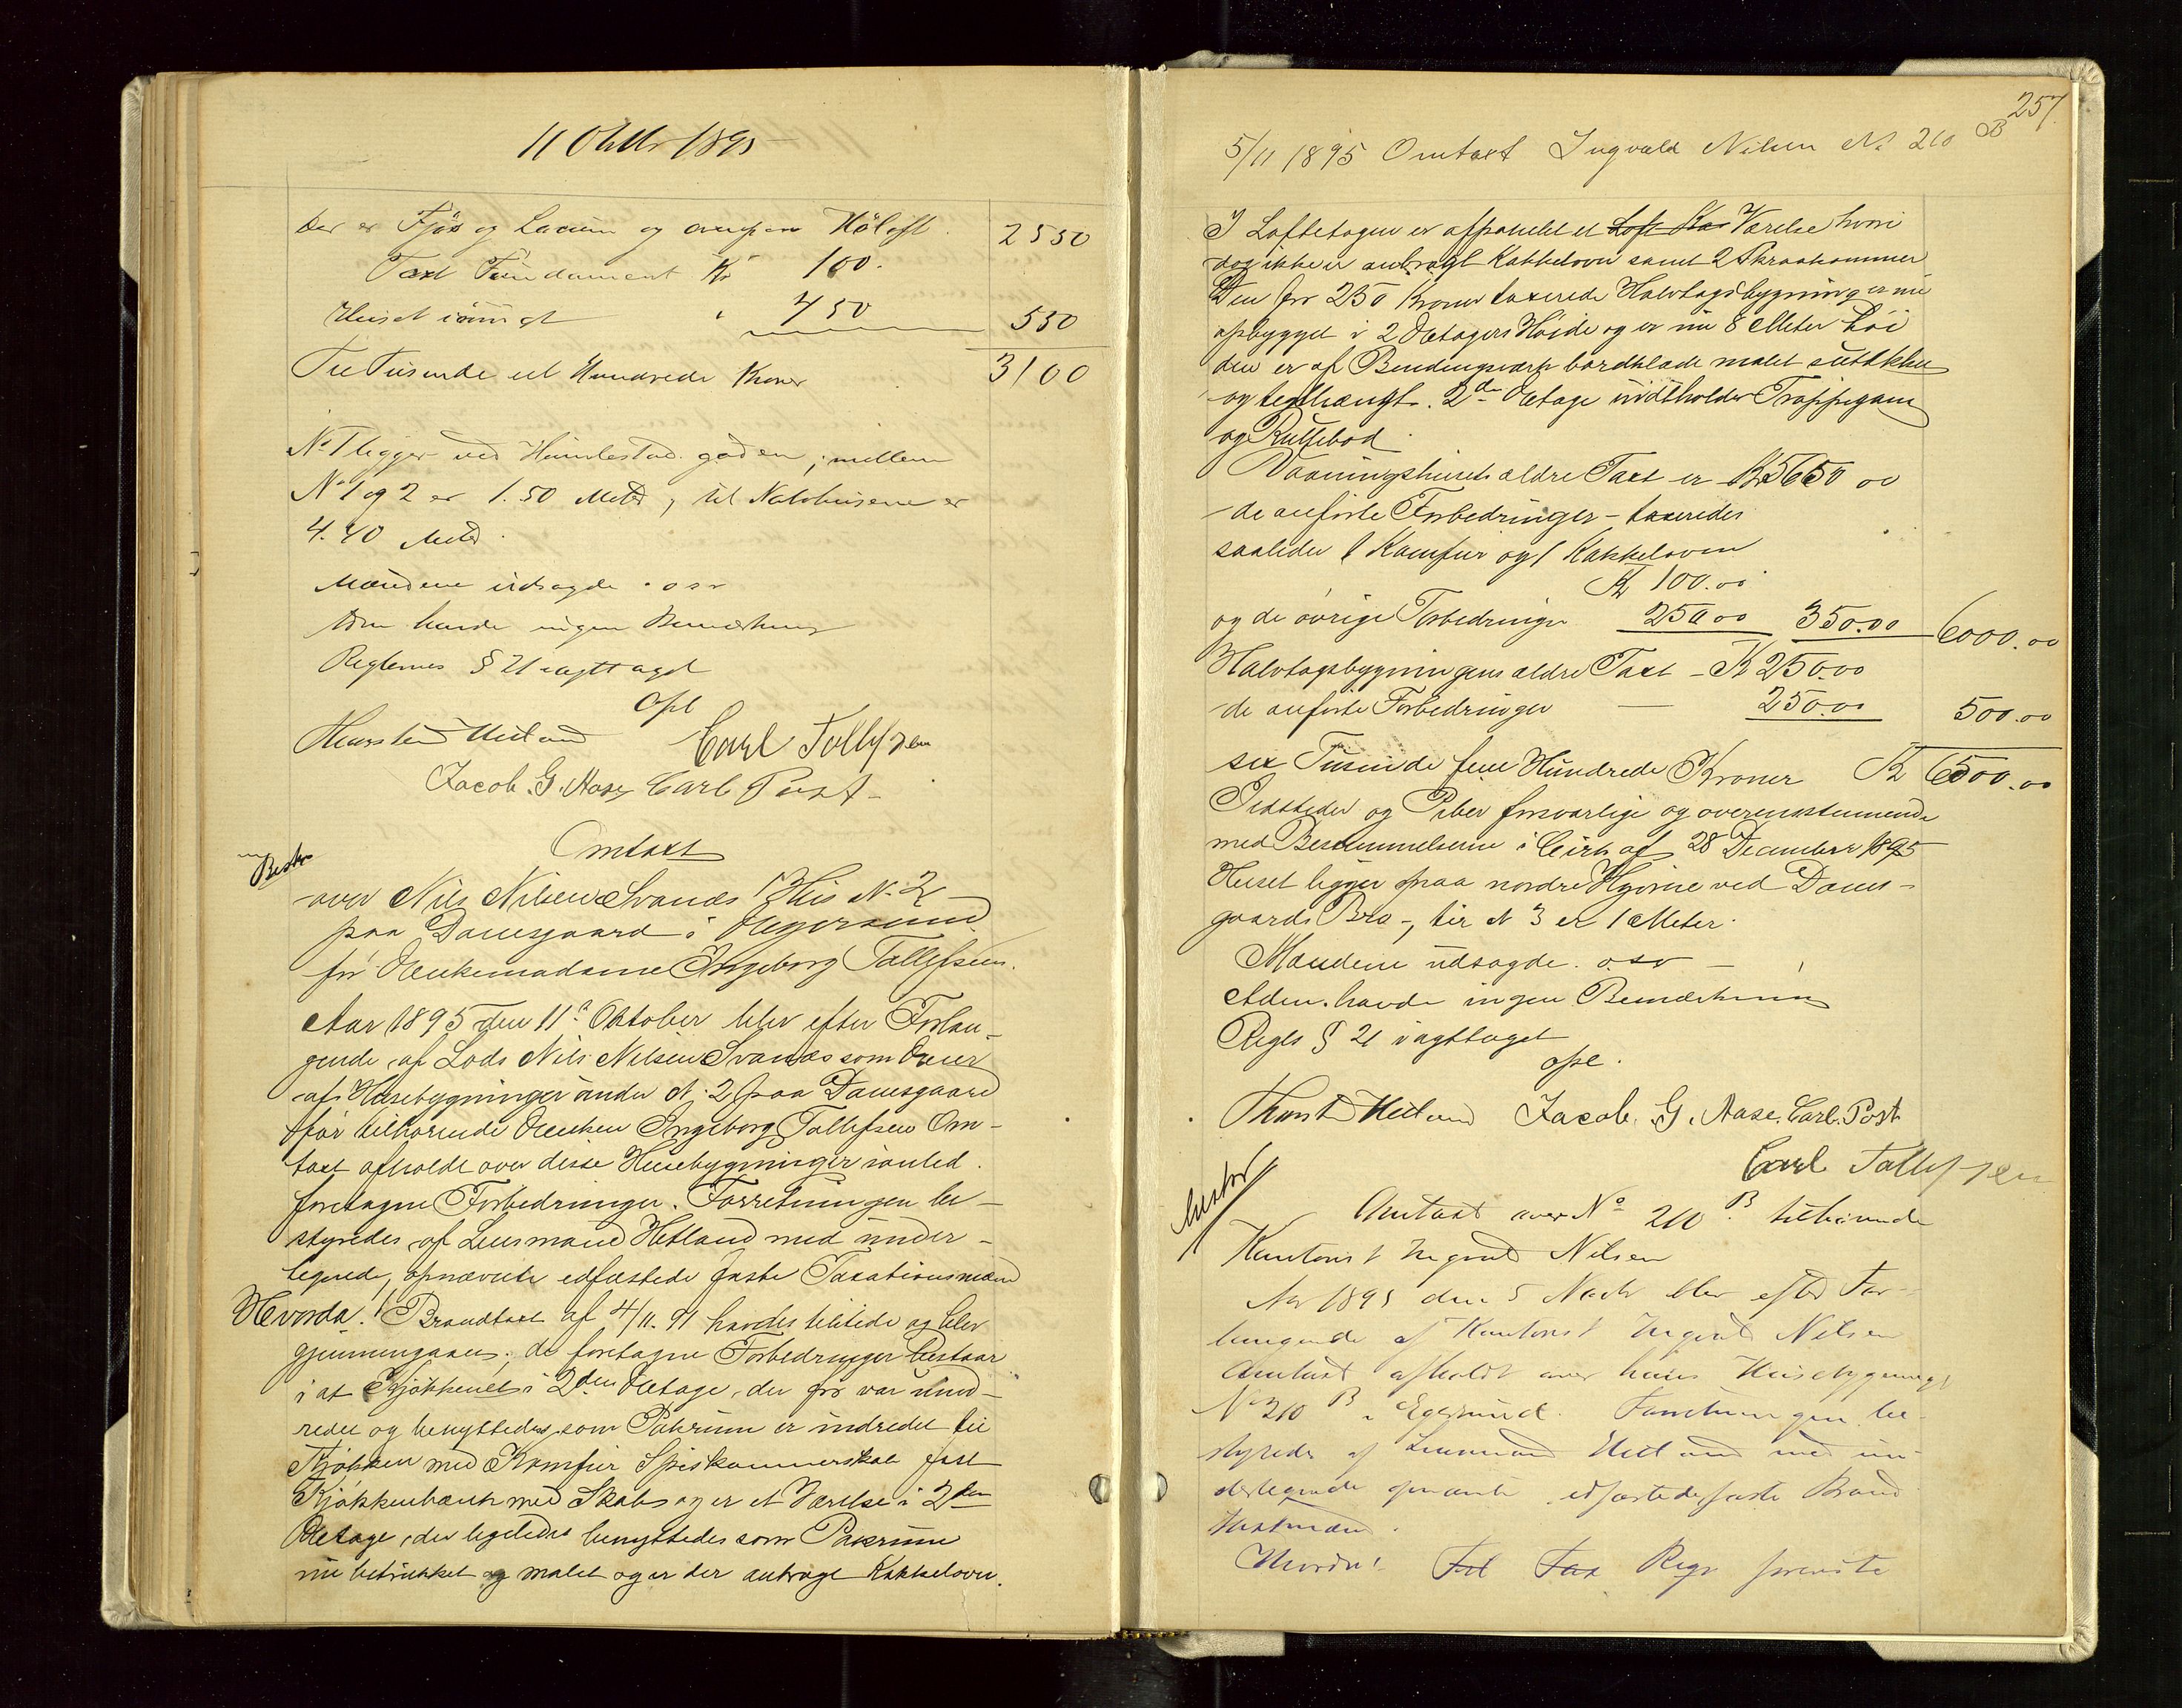 11 Oktbr 1895
Der er Fjøs og Locum og ovenpaa Höloft. 2550
Taxt Fundament Kr 100.
Huset iøvrigt " 450 550
Tre Tusende et Hundrede Kroner 3100
No 1 ligger ved Humlestad gaden; mellem
No 1 og 2 er 1.50 Meter, til Nabohusene er
4.40 Meter.
Mændene udsagde o s v
Adm havde ingen Bemærkning
Reglernes § 21 iagttaget
Opl
Thorstein Hetland Carl Tollefsen
Jacob. G. Aase Carl Post
Omtaxt
Bestr
over Nils Nilsen Svanæs Hus No 2
paa Damsgaard i Egersund
før Enkemadame Ingeborg Tollefsens.
Aar 1895 den 11te Oktober blev efter Forlan-
gende af Lods Nils Nilsen Svanæs som Eier
af Husebygninger under No 2 paa Damsgaard
før tilhørende Enken Ingeborg Tollefsen Om-
taxt afholdt over disse Husebygninger ianled.
foretagne Forbedringer. Forretningen be-
styredes af Lensmand Hetland med under-
tegnede, opnævnte edfæstede faste Taxationsmænd
Hvorda! Brandtaxt af 4/11. 91 havdes tilstede og blev
gjennemgaaet; de foretagne Forbedringer bestaar
i at Kjøkkenet i 2den Etage, der før var uind-
redet og benyttedes som Pakrum er indredet til
Kjøkken med Komfur Spiskammerskab fast
Kjøkkenbænk med Skab og er et Værelse i 2den
Etage, der ligeledes benyttedes som Pakrum
nu betrukket og malet og er der anbragt Kakkelovn.
257
5/11 1895 Omtaxt Ingvald Nilsen No 210 B
I Loftetagen er afpanelet et Loft Ka Værelse hvori
dog ikke er anbragt Kakkelovn samt 2 Skraakammer
Den for 250 Kroner taxerede Halvtagsbygning er nu
opbygget i 2 Etagers Høide og er nu 8 Meter høi
den er af Bendingsværk bordklædt malet
og teglhængt. 2den Etage indeholder Trappegang
og Rullebod.
Vaaningshusets ældre Taxt er Kr 5650 00
de anførte Forbedringer - taxeredes
saaledes 1 Komfur og 1 Kakkelovn
Kr 100.00
og de øvrige Forbedringer 250.00 350.00 6000.00
Halvtagsbygningens ældre Taxt - Kr 250.00
de anførte Forbedringer — 250.00 500.00
sex Tusinde fem Hundrede Kroner Kr 6500.00
Ildsteder og Piber forsvarlige og overensstemmende
med Bestemmelserne i Cirk af 28 December 1895
Huset ligger paa nordre Hjørne ved Dams-
gaards Bro -, til No 3 er 1 Meter.
Mændene udsagde. o.s.v —
Adm. havde ingen Bemærkning
Regls § 21 iagttaget
opl.
Thorst Hetland Jacob. G. Aase. Carl. Post
Carl Tollefsen
bestr
Omtaxt over No 210 B. tilhørende
Kantonist Ingvald Nilsen
Aar 1895 den 5 Novbr blev efter For-
langende af Kantonist Ingvald Nilsen
Omtaxt afholdt over hans Husebygninger
No 210 B i Egersund. Forretningen be-
styredes af Lensmand Hetland med un-
dertegnede opnævnte edfæstede faste Brand
taxtmænd.
Hvorda! Fol Tax Regs foreviste